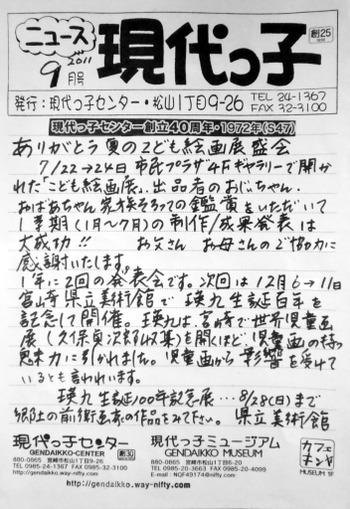 ニュース
2011
9月号
現代っ子
創25
発行:現代っ子センター・松山1丁目9-26
TEL 24-1367
FAX 32-3100
現代っ子センター創立40周年・1972年(S47)
ありがとう夏のこども絵画展盛会
7/22→24日 市民プラザ4Fギャラリーで開か
れた「こども絵画展」、出品者のおじいちゃん、
おばあちゃん家族そろっての鑑賞をいただいて
1学期(1月〜7月)の制作/成果発表は
大成功!! お父さん お母さんのご協力に
感謝いたします。
1年に2回の発表会です。次回は12月6→11日
宮崎県立美術館で瑛九生誕百年を
記念して開催。瑛九は宮崎で世界児童画
展(久保貞次郎収集)を開くほど児童画の持つ
魅力に引かれました。児童画から影響を受けて
いるとも言われいます。
瑛九生誕100年記念展…8/28(日)まで
郷土の前術画家の作品をみて下さい。県立美術館
現代っ子センター
GENDAIKKO-CENTER
創30
880-0865 宮崎市松山1丁目9-26
TEL 0985-24-1367 FAX 0985-32-3100
http://gendaikko.way-nifty.com
現代っ子ミュージアム
GENDAIKKO MUSEUM
880-0865 宮崎市松山1丁目6-
TEL 0985-20-3663 FAX 0985-20-4099
E-mail : NQF49174@nifty.com
http://gendaikko.way-nifty.com/
カフェ
MUSEUM 1F